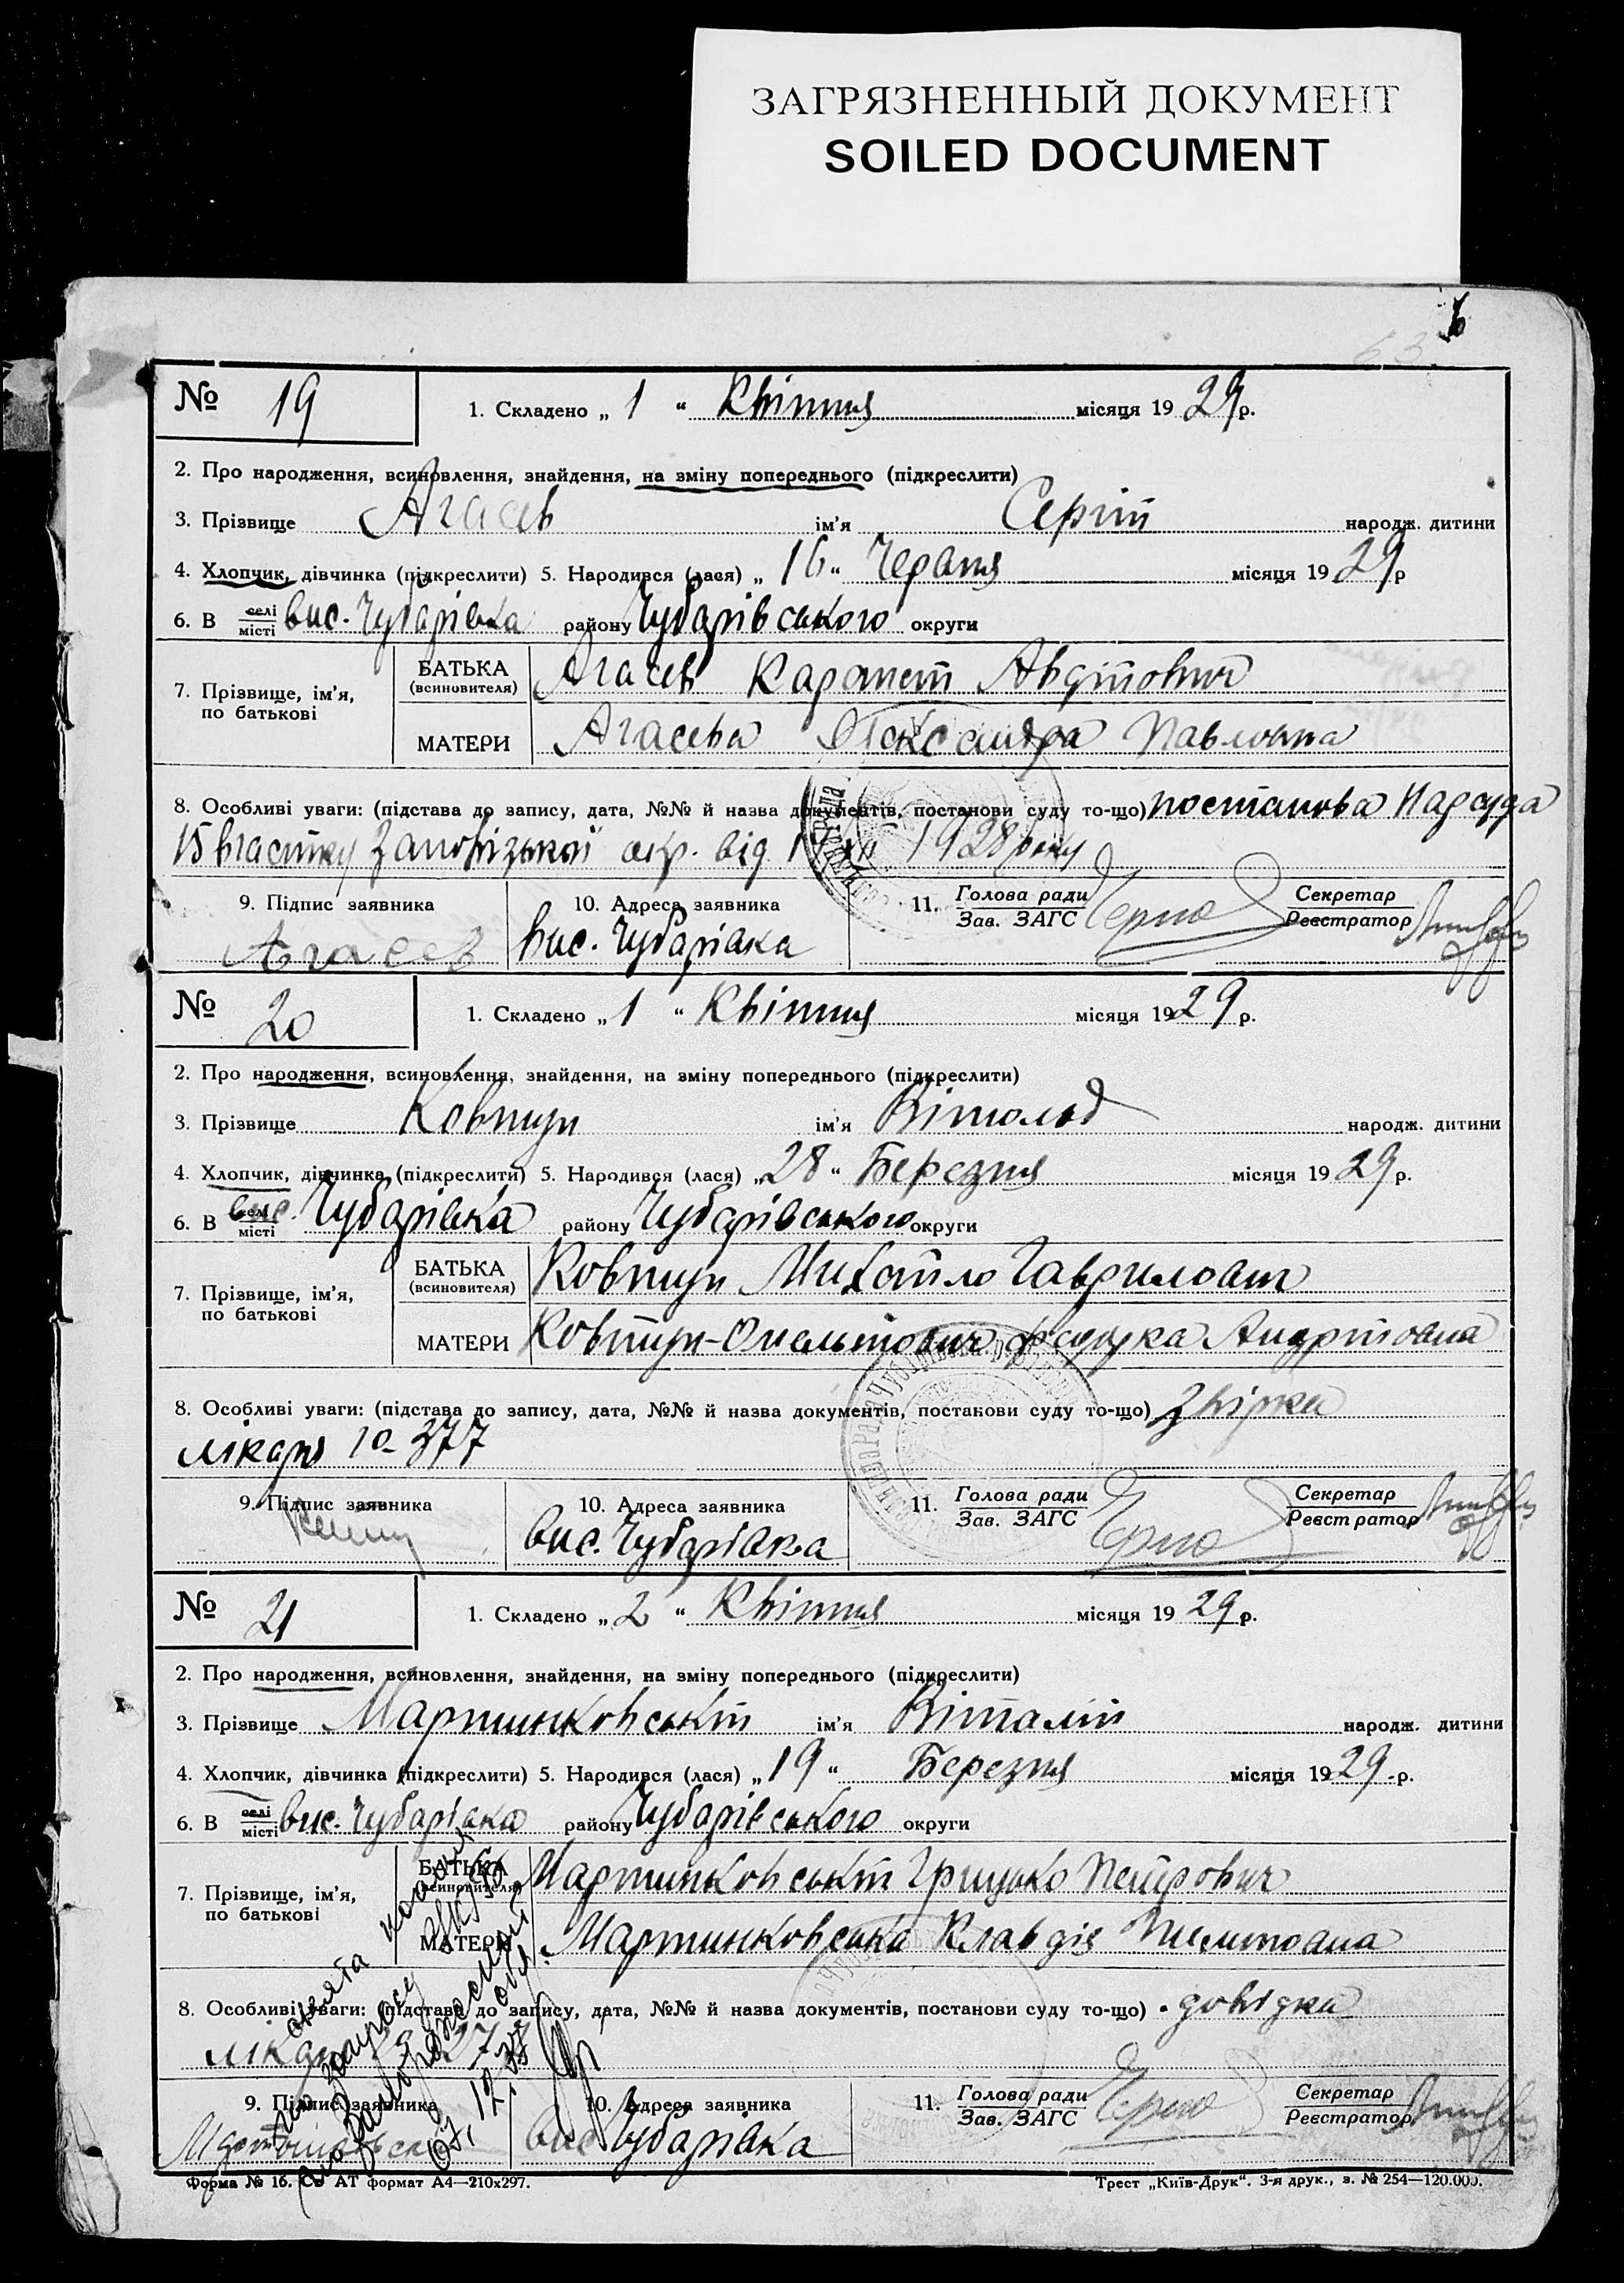 ЗАГРЯЗНЕННЫЙ ДОКУМЕНТ
SOILED DOCUMENT
6
63
№ 19 1. Складено „ 1 “ Квітня місяця 1929 р.
2. Про народження, всиновлення, знайдення, на зміну попереднього (підкреслити)
3. Прізвище Агасев ім'я Сергій народж. дитини
4. Хлопчик, дівчинка (підкреслити) 5. Народився (лася) „ 16 “ Червня місяця 1929 р
6. В селі місті вис. Чубарівка району Чубарівського округи
7. Прізвище, ім'я, по батькові
БАТЬКА (всиновителя) Агасев Карапет Авдійович
МАТЕРИ Агасева Олександра Павловна
8. Особливі уваги: (підстава до запису, дата, №№ й назва документів, постанови суду то-що) постанова Нарсуда
15 вчастку Запорізької окр. від 1928 року
9. Підпис заявника 10. Адреса заявника 11. Голова ради Секретар
Зав. ЗАГС Реєстратор
Агасев вис. Чубарівка
№ 20 1. Складено „ 1 “ Квітня місяця 1929 р.
2. Про народження, всиновлення, знайдення, на зміну попереднього (підкреслити)
3. Прізвище Ковтун ім'я Вітольд народж. дитини
4. Хлопчик, дівчинка (підкреслити) 5. Народився (лася) „ 28 “ Березня місяця 1929 р.
6. В селі місті вис. Чубарівка району Чубарівського округи
7. Прізвище, ім'я, по батькові
БАТЬКА (всиновителя) Ковтун Михайло Гаврилович
МАТЕРИ Ковтун-Омельянович Андріївна
8. Особливі уваги: (підстава до запису, дата, №№ й назва документів, постанови суду то-що)
лікаря 377
9. Підпис заявника 10. Адреса заявника 11. Голова ради Секретар
Зав. ЗАГС Реєстратор
вис. Чубарівка
№ 21 1. Складено „ 2 “ Квітня місяця 1929 р.
2. Про народження, всиновлення, знайдення, на зміну попереднього (підкреслити)
3. Прізвище Мартинковський ім'я Віталій народж. дитини
4. Хлопчик, дівчинка (підкреслити) 5. Народився (лася) „ 19 “ Березня місяця 1929 р.
6. В селі місті вис. Чубарівка району Чубарівського округи
7. Прізвище, ім'я, по батькові
БАТЬКА (всиновителя) Мартинковський Грицько Петрович
МАТЕРИ Мартинковська Клавдія
8. Особливі уваги: (підстава до запису, дата, №№ й назва документів, постанови суду то-що) довідка
лікаря
9. Підпис заявника 10. Адреса заявника 11. Голова ради Секретар
Зав. ЗАГС Реєстратор
вис. Чубарівка
снята копия
по запросу
Форма № 16. Со АТ формат А4—210x297. Трест „Київ-Друк“. 3-я друк., з. № 254—120.000.